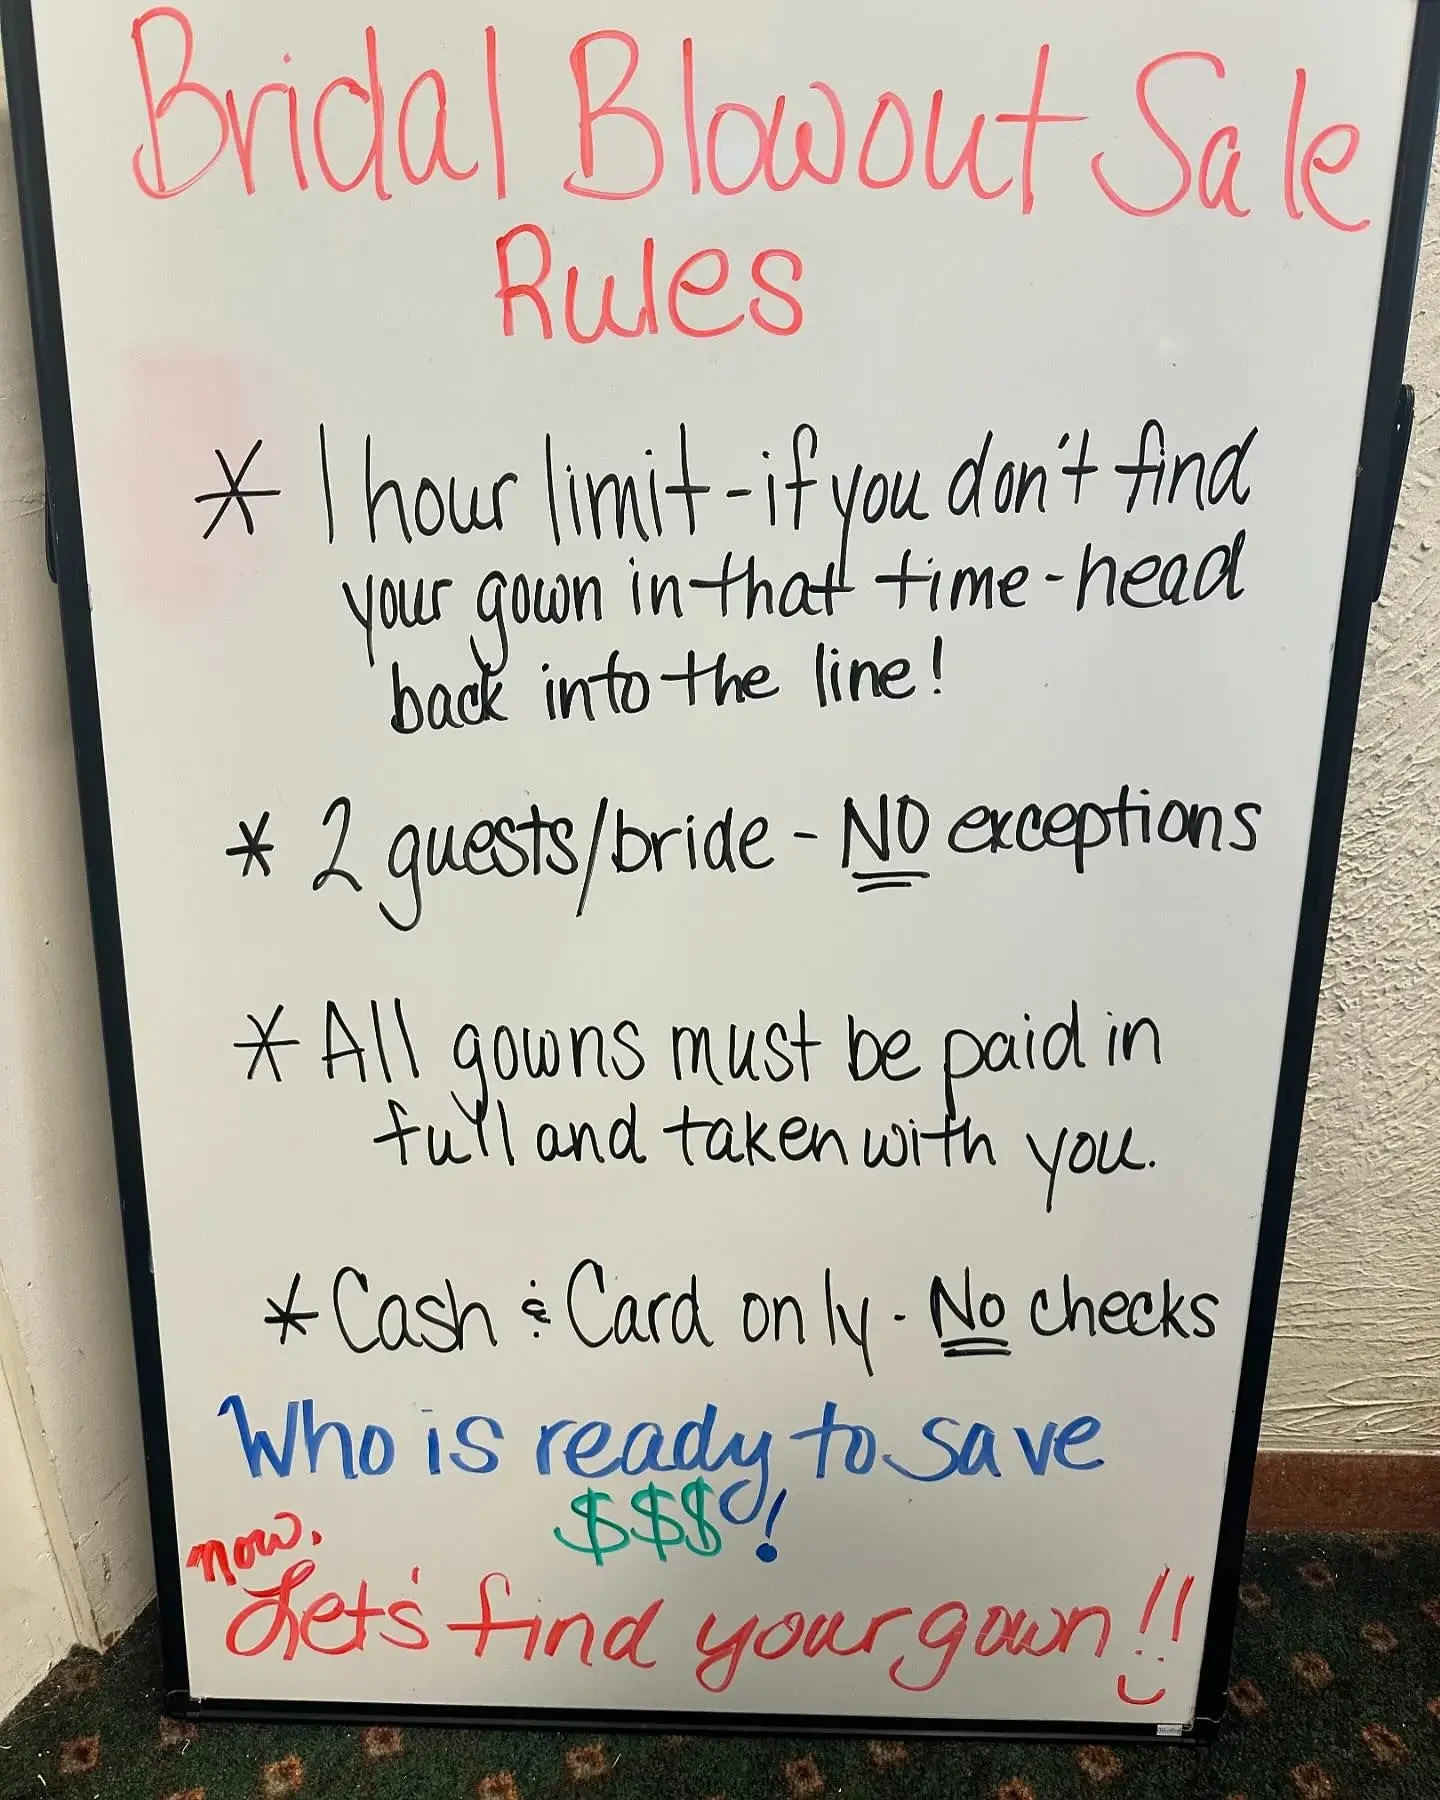 Bridal Blowout Sale
Rules
* 1 hour limit - if you don't find
your gown in that time - head
back into the line!
* 2 guests/bride - NO exceptions
* All gowns must be paid in
full and taken with you.
* Cash & Card only - No checks
Who is ready to save
$$$!
now.
Let's find your gown!!